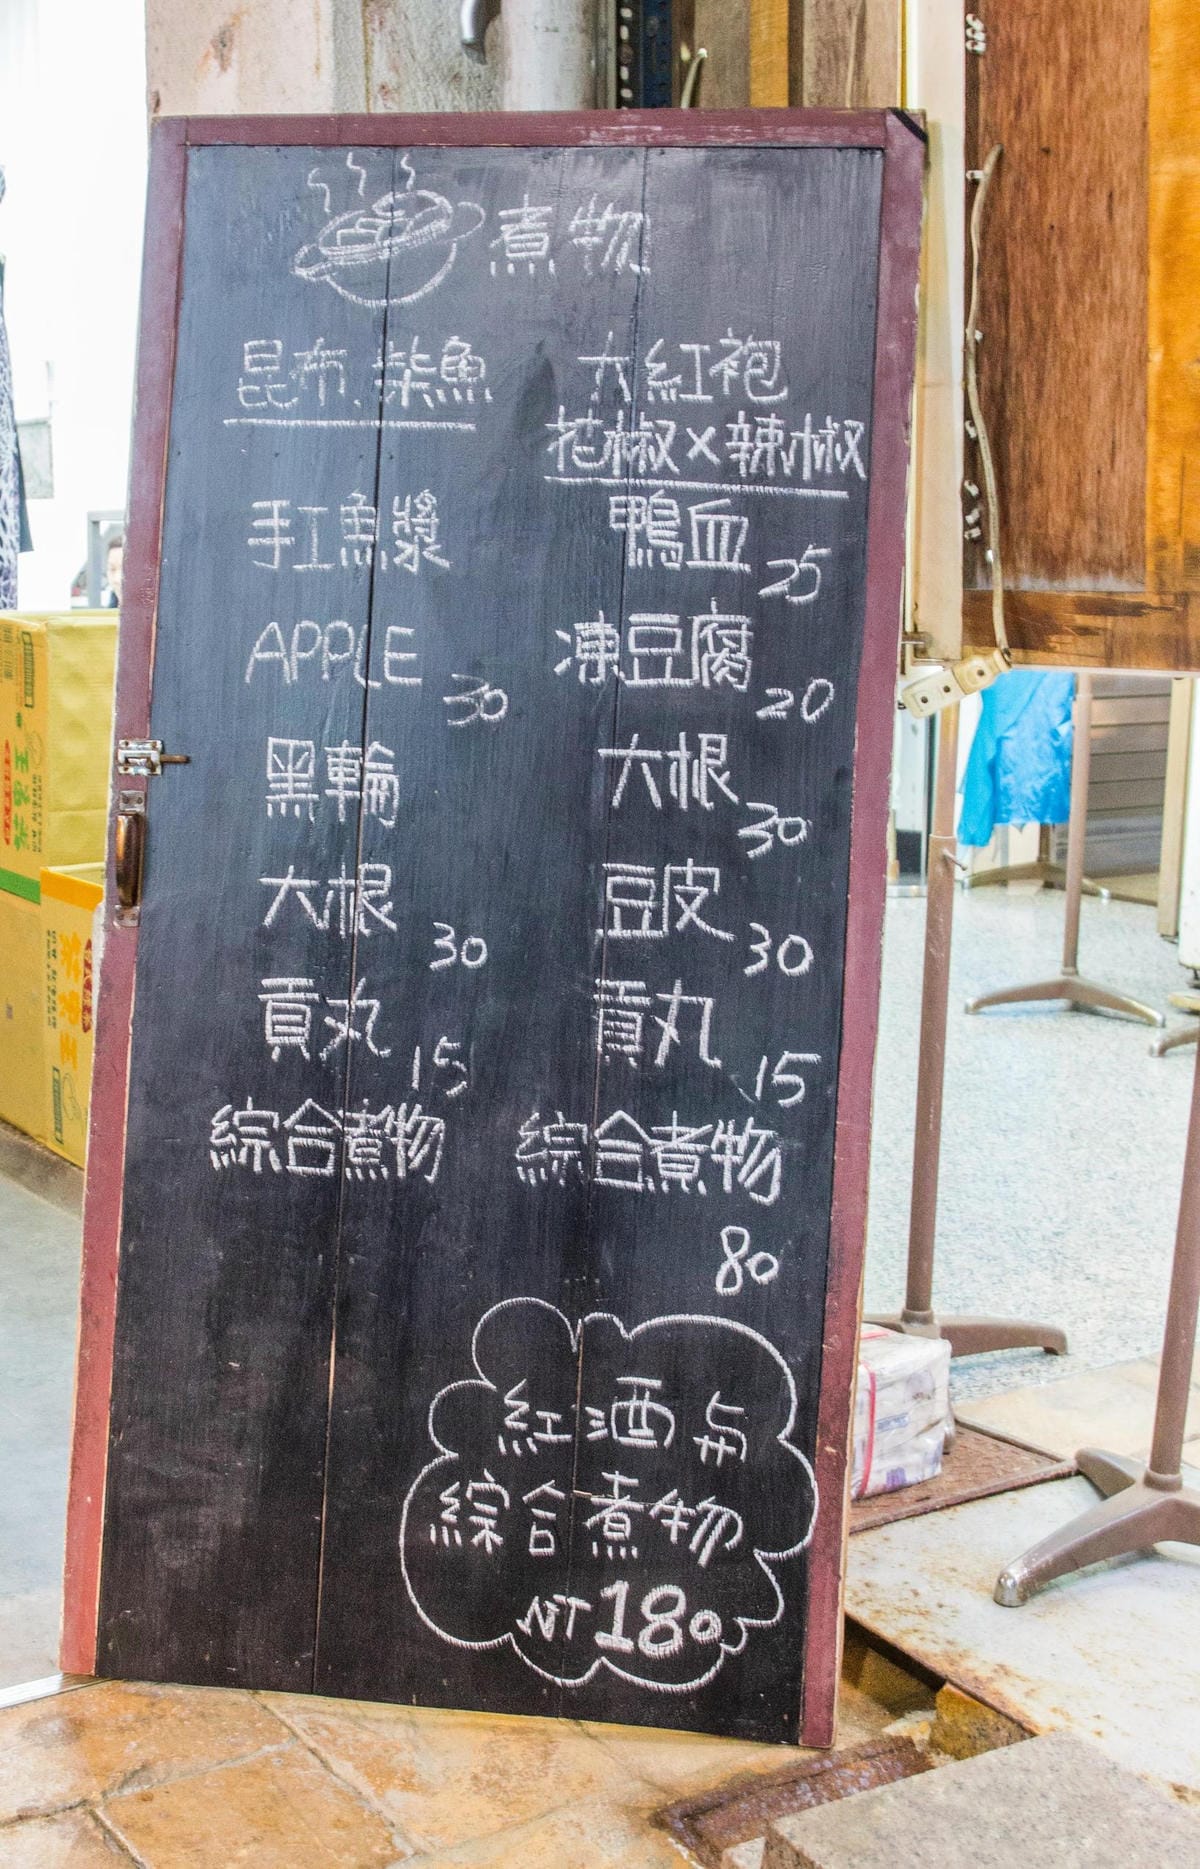 煮物
昆布、柴魚
手工魚漿
APPLE 30
黑輪
大根 30
貢丸 15
綜合煮物
大紅袍
花椒×辣椒
鴨血 25
凍豆腐 20
大根 30
豆皮 30
貢丸 15
綜合煮物
80
紅酒与
綜合煮物
NT 180